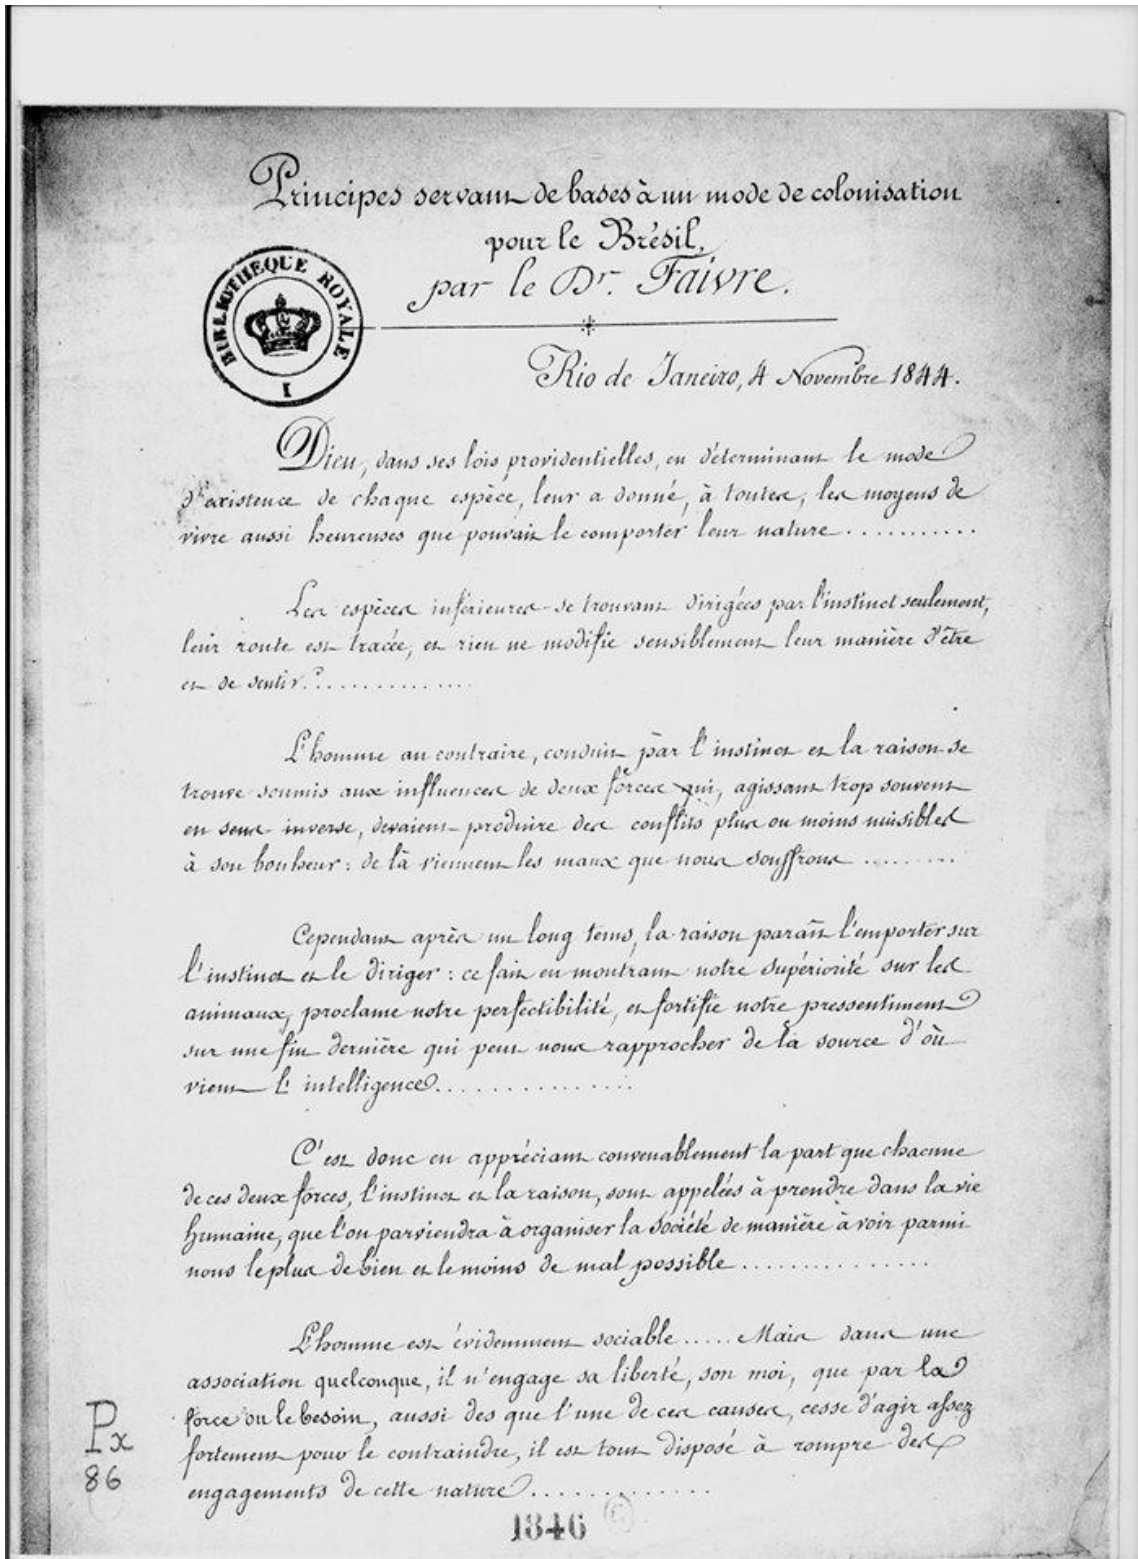 Principes servant de bases à un mode de colonisation
pour le Brésil,
par le Dr. Faivre.
BIBLIOTHEQUE ROYALE
I
Rio de Janeiro, 4 Novembre 1844.
Dieu, dans ses lois providentielles, en déterminant le mode
d'existence de chaque espèce, leur a donné, à toutes, les moyens de
vivre aussi heureuses que pouvait le comporter leur nature...........
Les espèces inférieures se trouvant dirigées par l'instinct seulement,
leur route est tracée, et rien ne modifie sensiblement leur manière d'être
et de sentir..............
L'homme au contraire, conduit par l'instinct et la raison se
trouve soumis aux influences de deux forces qui, agissant trop souvent
en sens inverse, devaient produire des conflits plus ou moins nuisibles
à son bonheur : de là viennent les maux que nous souffrons .........
Cependant après un long tems, la raison paraît l'emporter sur
l'instinct et le diriger : ce fait en montrant notre supériorité sur les
animaux, proclame notre perfectibilité, et fortifie notre pressentiment
sur une fin dernière qui peut nous rapprocher de la source d'où
vient l'intelligence...............
C'est donc en appréciant convenablement la part que chacune
de ces deux forces, l'instinct et la raison, sont appelées à prendre dans la vie
humaine, que l'on parviendra à organiser la société de manière à voir parmi
nous le plus de bien et le moins de mal possible ...............
L'homme est évidemment sociable ..... Mais dans une
association quelconque, il n'engage sa liberté, son moi, que par la
force ou le besoin, aussi des que l'une de ces causes, cesse d'agir assez
fortement pour le contraindre, il est tout disposé à rompre des
engagements de cette nature.............
Px
86
1846